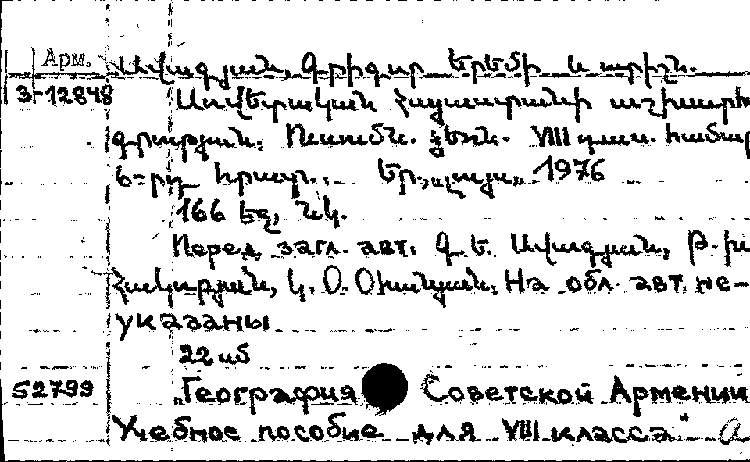 Арм.
Ավագյան, Գրիգոր Երեմի և ուրիշն.
3-12848 Սովետական Հայաստանի աշխարհ
գրություն: Ուսումն. ձեռն. VIII դաս. համար
6-րդ հրատ.. Եր., 1976
166 էջ, նկ.
Перед загл. авт. Գ. Ե. Ավագյան, Թ.
Հակոբյան, На обл. авт. не-
указаны
22 սմ
52799 „География Советской Армении
Учебное пособие для VIII класса"